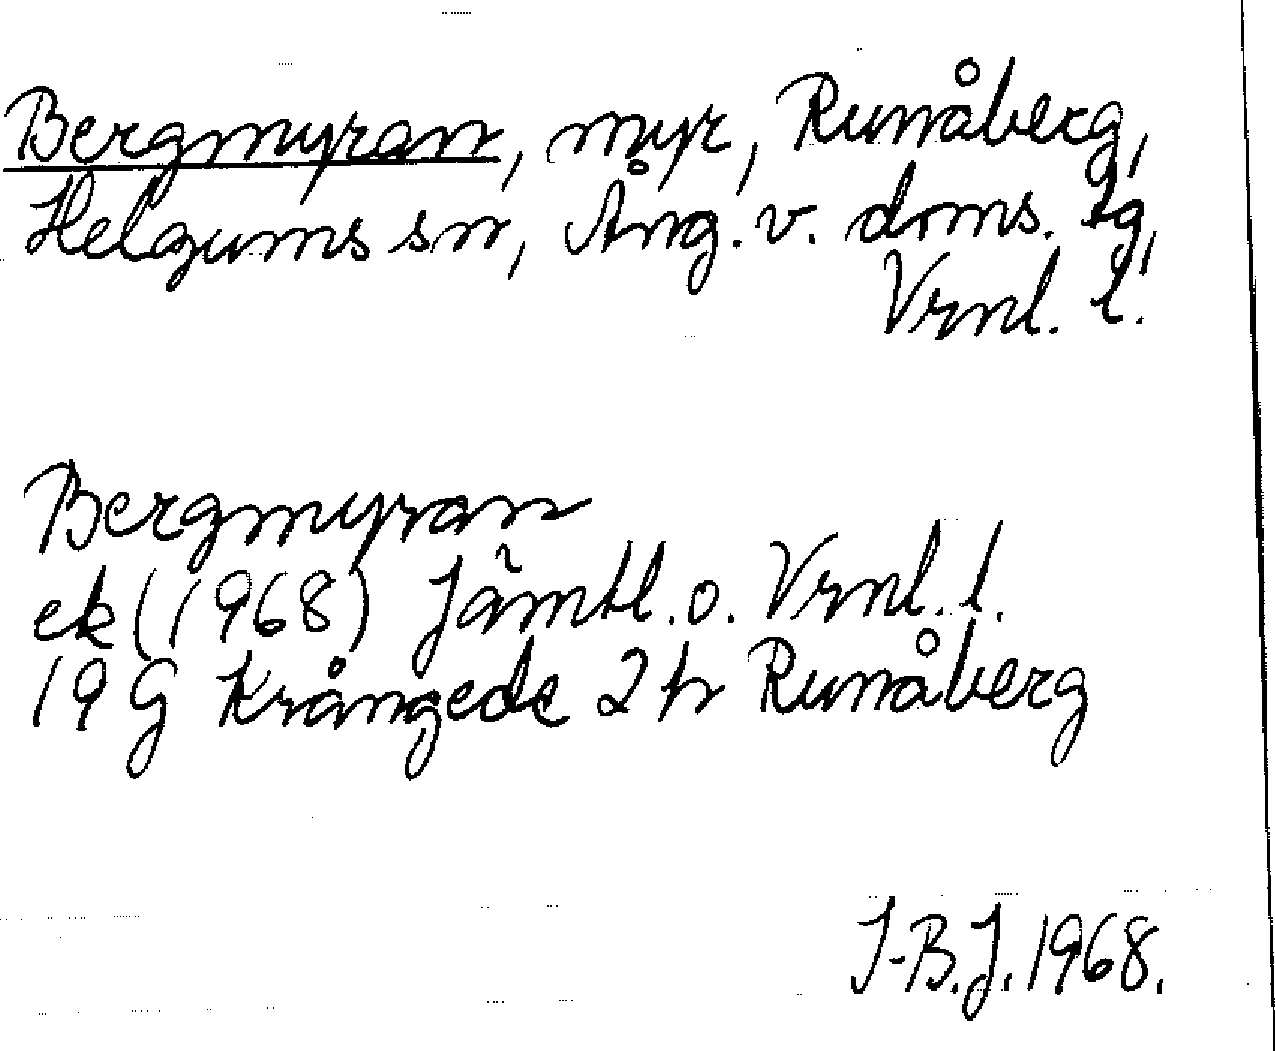 Bergmyran, myr, Runåberg,
Helgums sn, Ång. v. doms. tg,
Vrnl. l.
Bergmyran
ek (1968) Jämtl. o. Vrnl. l.
19 G Krångede 2 tr Runåberg
I-B.J. 1968.